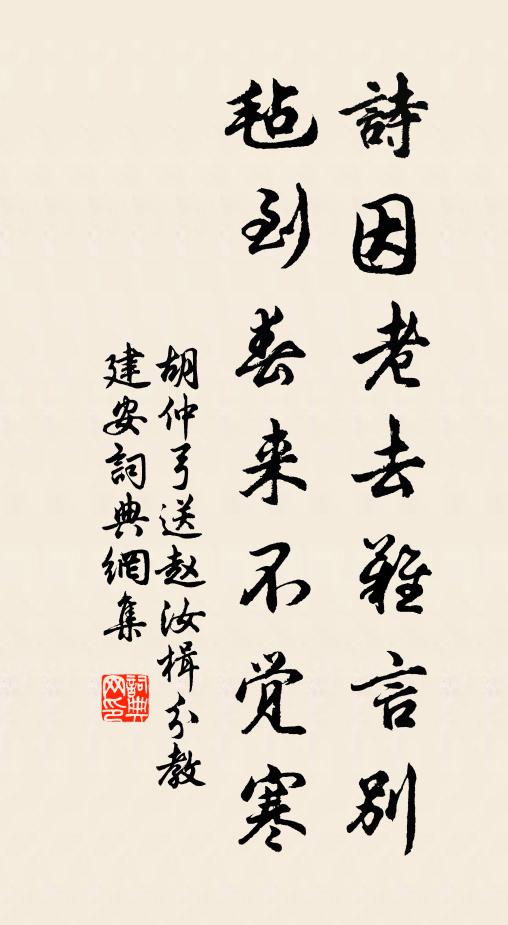 詩因老去難言別
毡到春来不觉寒
胡仲弓送赵汝楫分教
建安詞典網集
詞典网印